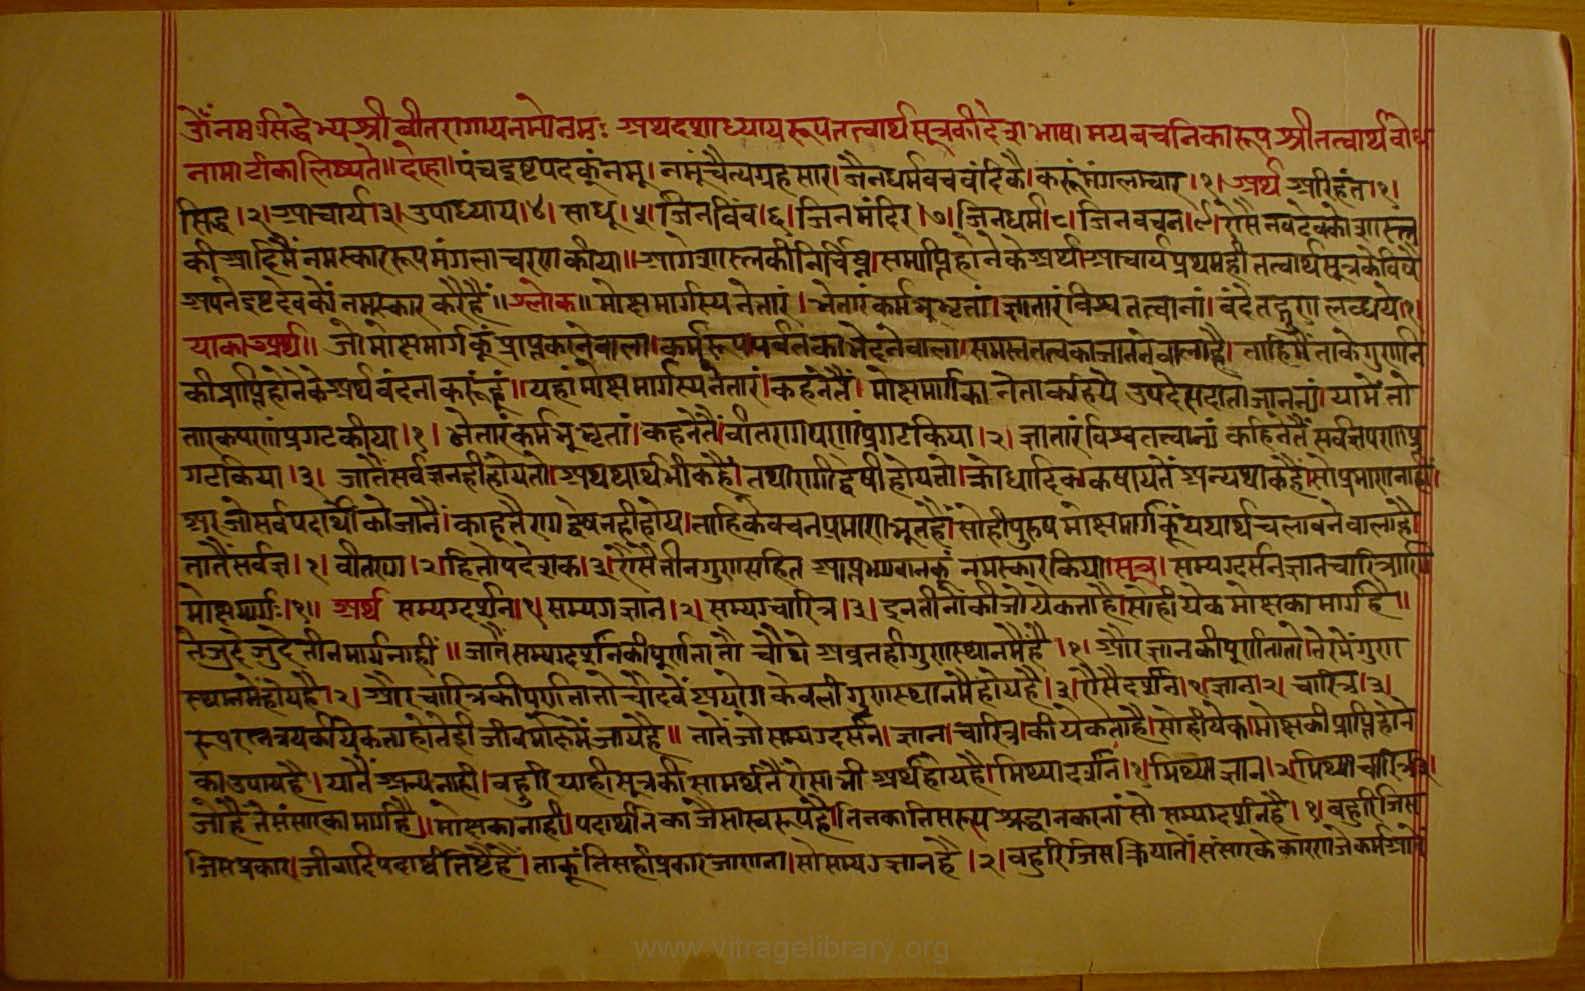 ॐ नमः सिद्धेभ्य श्री वीतरागाय नमोनमः अथ दशाध्याय रूप तत्वार्थ सूत्र की देश भाषा मय वचनिका रूप श्री तत्वार्थ बोध
नामा टीका लिष्यते॥ दोहा॥ पंच इष्ट पद कूं नमू। नमूं चैत्यग्रह सार। जैन धर्म वच वंदिकै। करूं मंगलाचार।१। अर्थ अरिहंत।१।
सिद्ध।२। आचार्य।३। उपाध्याय।४। साधू।५। जिनविंव।६। जिनमंदिर।७। जिनधर्म।८। जिनवचन।९। ऐसै नव देव को शास्त्र
की आदि मैं नमस्काररूप मंगलाचरण कीया॥ आगे शास्त्र की निर्विघ्न। समाप्ति होने के अर्थी आचार्य प्रथम ही तत्वार्थ सूत्र के विषै
अपने इष्ट देव कों नमस्कार करै हैं॥ श्लोक॥ मोक्षमार्गस्य नेतारं। भेतारं कर्मभूभृतां। ज्ञातारं विश्वतत्वानां। वंदे तद्गुण लब्धये।१।
याका अर्थ॥ जो मोक्षमार्ग कूं प्राप्त काने वाला। कर्मरूप पर्वत का भेदने वाला। समस्त तत्व का जानने वाला है। ताहि मैं ताके गुणनि
की प्राप्ति होने के अर्थ वंदना करूं हूं॥ यहां मोक्षमार्गस्य नेतारं। कहने तैं। मोक्षमार्ग का नेता कहिये उपदेसदाता जानन्यां। यामें तो
तारकपणां प्रगट कीया।१। भेतारं कर्मभूभृतां। कहने तैं। वीतरागपणां प्रगट किया।२। ज्ञातारं विश्वतत्वान्यं कहिने तैं सर्वज्ञपणा प्र
गट किया।३। जातैं सर्वज्ञ नहीं होय तो। अयथार्थ भी कहै। तथा रागी द्वेषी होय तो। क्रोधादिक कषाय तें अन्यथा कहै। सो प्रमाण नाहीं।
अर जो सर्व पदार्थों को जानै। काहू तै राग द्वेष नहीं होय। ताहि के वचन प्रमाण भूत है। सो ही पुरुष मोक्षमार्ग कूं यथार्थ चलावने वाला है।
तातैं सर्वज्ञ।१। वीतराग।२। हितोपदेशक।३। ऐसै तीन गुण सहित आप्त भगवान कूं नमस्कार किया। सूत्र। सम्यग्दर्सन ज्ञान चारित्राणि
मोक्षमार्गः।१॥ अर्थ सम्यग्दर्शन।१। सम्यग ज्ञान।२। सम्यग्चारित्र।३। इन तीनों की जो येकता है। सो ही येक मोक्ष का मार्ग है॥
ते जुदे जुदे तीन मार्ग नाहीं॥ जातैं सम्यग्दर्शन की पूर्णता तौ चौथे अव्रत ही गुणस्थान मैं है।१। और ज्ञान की पूर्णता तो तेरमें गुण
स्थान में होय है।२। और चारित्र की पूर्णता तो चौदवें अयोग केवली गुणस्थान मै होय है।३। ऐसै दर्शन।१। ज्ञान।२। चारित्र।३।
रूप रत्नत्रय की येकता होते ही जीव मोक्षि मैं जाये है॥ तातें जो सम्यग्दर्सन। ज्ञान। चारित्र। की येकता है। सो ही येक। मोक्ष की प्राप्ति होने
का उपाय है। यातैं अन्य नाही। बहुरि याही सूत्र की सामर्थ तैं ऐसा भी अर्थ होय है। मिथ्यादर्शन।१। मिथ्याज्ञान।२। मिथ्याचारित्र।३।
जो है ते संसार का मार्ग है। मोक्ष का नाही। पदार्थनि का जैसा स्वरूप है। तिनका तिस रूप श्रद्धान करनां सो सम्यग्दर्शन है।१। बहुरि जिस
जिस प्रकार। जीवादि पदार्थ तिष्टै हैं। ताकूं तिसही प्रकार जाणना। सो सम्यग ज्ञान है।२। बहुरि जिस क्रिया तों संसार के कारण जे कर्म आवे
www.vitragelibrary.org